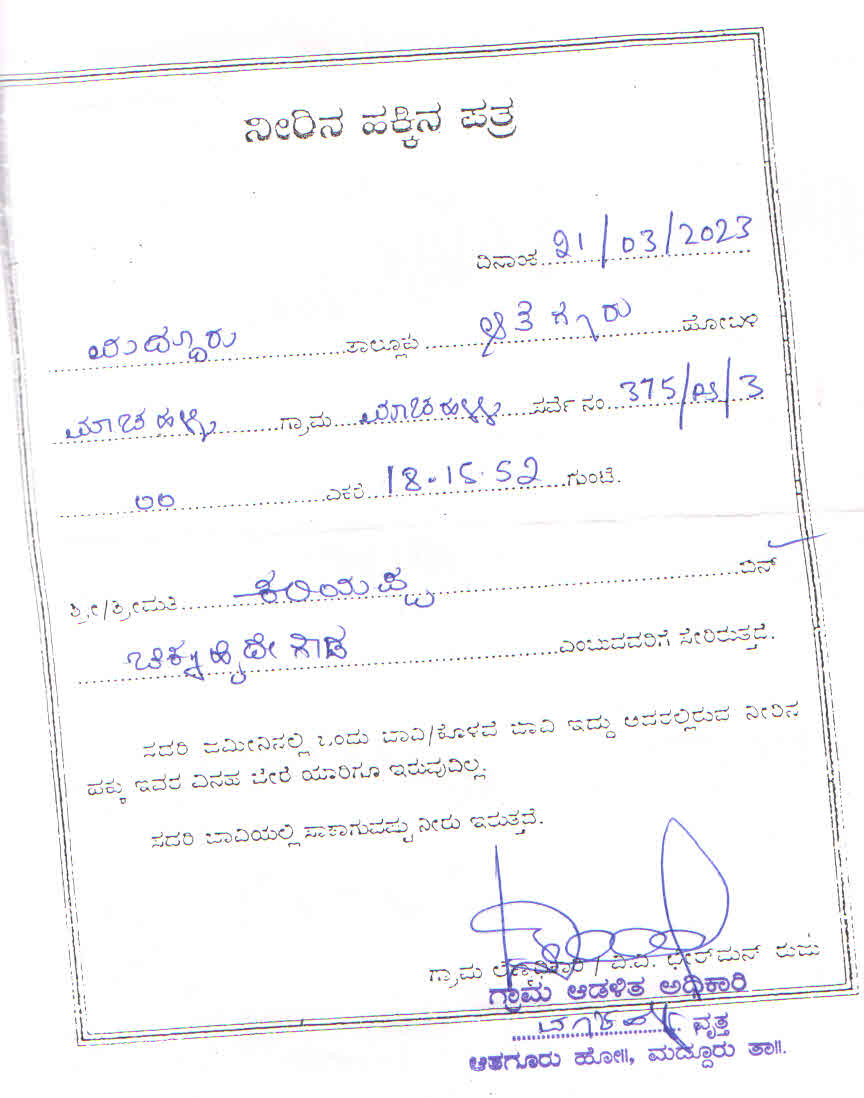 ನೀರಿನ ಹಕ್ಕಿನ ಪತ್ರ
ದಿನಾಂಕ 21/03/2023
ಮದ್ದೂರು ತಾಲ್ಲೂಕು ಆತಗೂರು ಹೋಬಳಿ
ಮಾಚಹಳ್ಳಿ ಗ್ರಾಮ ಮಾಚಹಳ್ಳಿ ಸರ್ವೆ ನಂ. 375/ಅ/3
00 ಎಕರೆ 18.15.52 ಗುಂಟೆ.
ಶ್ರೀ/ಶ್ರೀಮತಿ ಕರಿಯಪ್ಪ ಬಿನ್
ಎಂಬುವವರಿಗೆ ಸೇರಿರುತ್ತದೆ.
ಸದರಿ ಜಮೀನಿನಲ್ಲಿ ಒಂದು ಬಾವಿ/ಕೊಳವೆ ಬಾವಿ ಇದ್ದು ಅದರಲ್ಲಿರುವ ನೀರಿನ
ಹಕ್ಕು ಇವರ ವಿನಹ ಬೇರೆ ಯಾರಿಗೂ ಇರುವುದಿಲ್ಲ.
ಸದರಿ ಬಾವಿಯಲ್ಲಿ ಸಾಕಾಗುವಷ್ಟು ನೀರು ಇರುತ್ತದೆ.
ಗ್ರಾಮ ಲೆಕ್ಕಾಧಿಕಾರಿ / ವಿ.ಪಿ. ಛೇರ್‌ಮನ್ ರುಜು
ಗ್ರಾಮ ಆಡಳಿತ ಅಧಿಕಾರಿ
ವೃತ್ತ
ಆತಗೂರು ಹೋ॥, ಮದ್ದೂರು ತಾ॥.